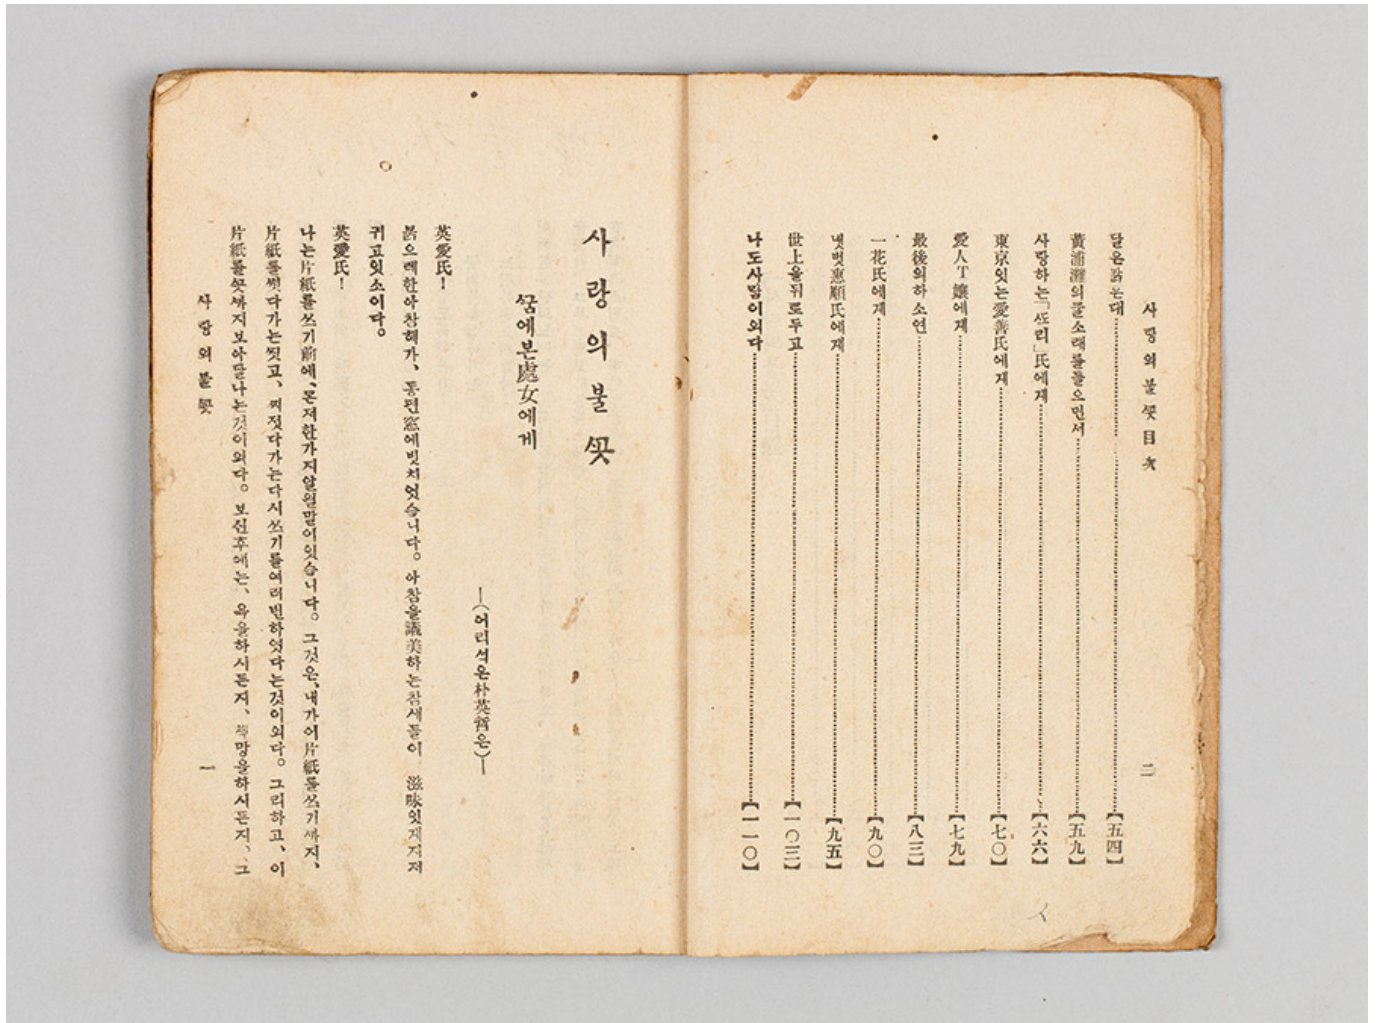 사랑의불꼿目次
달은밝은대【五四】
黃浦灘의물소래를들으면서【五九】
사랑하는「쏘리」氏에게【六六】
東京잇는愛善氏에게【七〇】
愛人T孃에게【七九】
最後의하소연【八三】
一花氏에게【九〇】
녯벗惠順氏에게【九五】
世上을뒤로두고【一〇三】
나도사람이외다【一一〇】
二
사랑의불꼿
ᄭᅮᆷ에본處女에게
—(어리석은朴英哲은)—
英愛氏!
붉으레한아참해가、동편窓에빗치엇습니다。아참을讚美하는참새들이、滋味잇게지저
귀고잇소이다。
英愛氏!
나는片紙를쓰기前에、몬저한가지알욀말이잇습니다。그것은、내가이片紙를쓰기ᄭᅡ지、
片紙를썻다가는찟고、찌젓다가는다시쓰기를여러번하엿다는것이외다。그리하고、이
片紙를ᄭᅳᆺᄭᅡ지보아달나는것이외다。보신후에는、욕을하시든지、책망을하시든지、그
사랑의불꼿
一